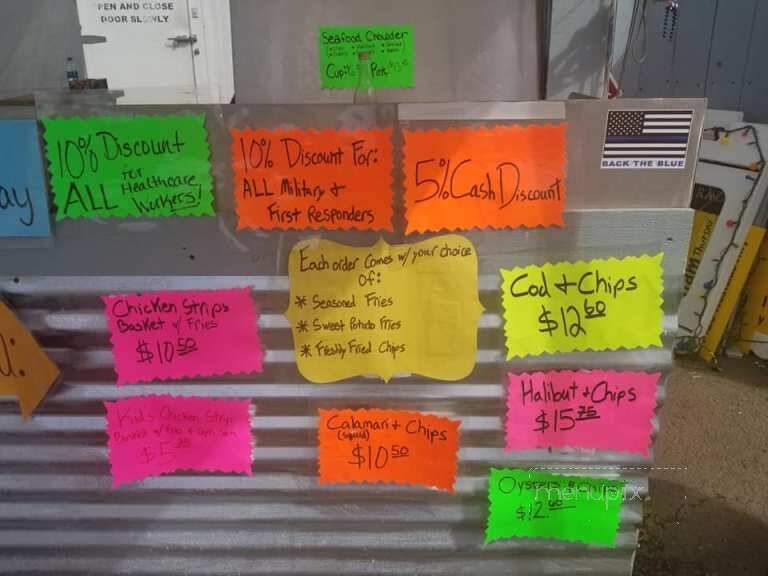 PEN AND CLOSE
DOOR SLOWLY
Seafood Chowder
Cup
10% Discount
for
ALL Healthcare
Workers!
10% Discount For:
ALL Military &
First Responders
5% Cash Discount
BACK THE BLUE
ay
Each order comes w/ your choice
Of:
* Seasoned Fries
* Sweet Potato Fries
* Freshly Fried Chips
Chicken Strips
Basket w/ Fries
$10.50
Cod + Chips
$12.60
Halibut + Chips
$15.75
Kid's Chicken Strip
$5
Calamari + Chips
(Squid)
$10.50
Oysters + Chips
$12.60
menupix